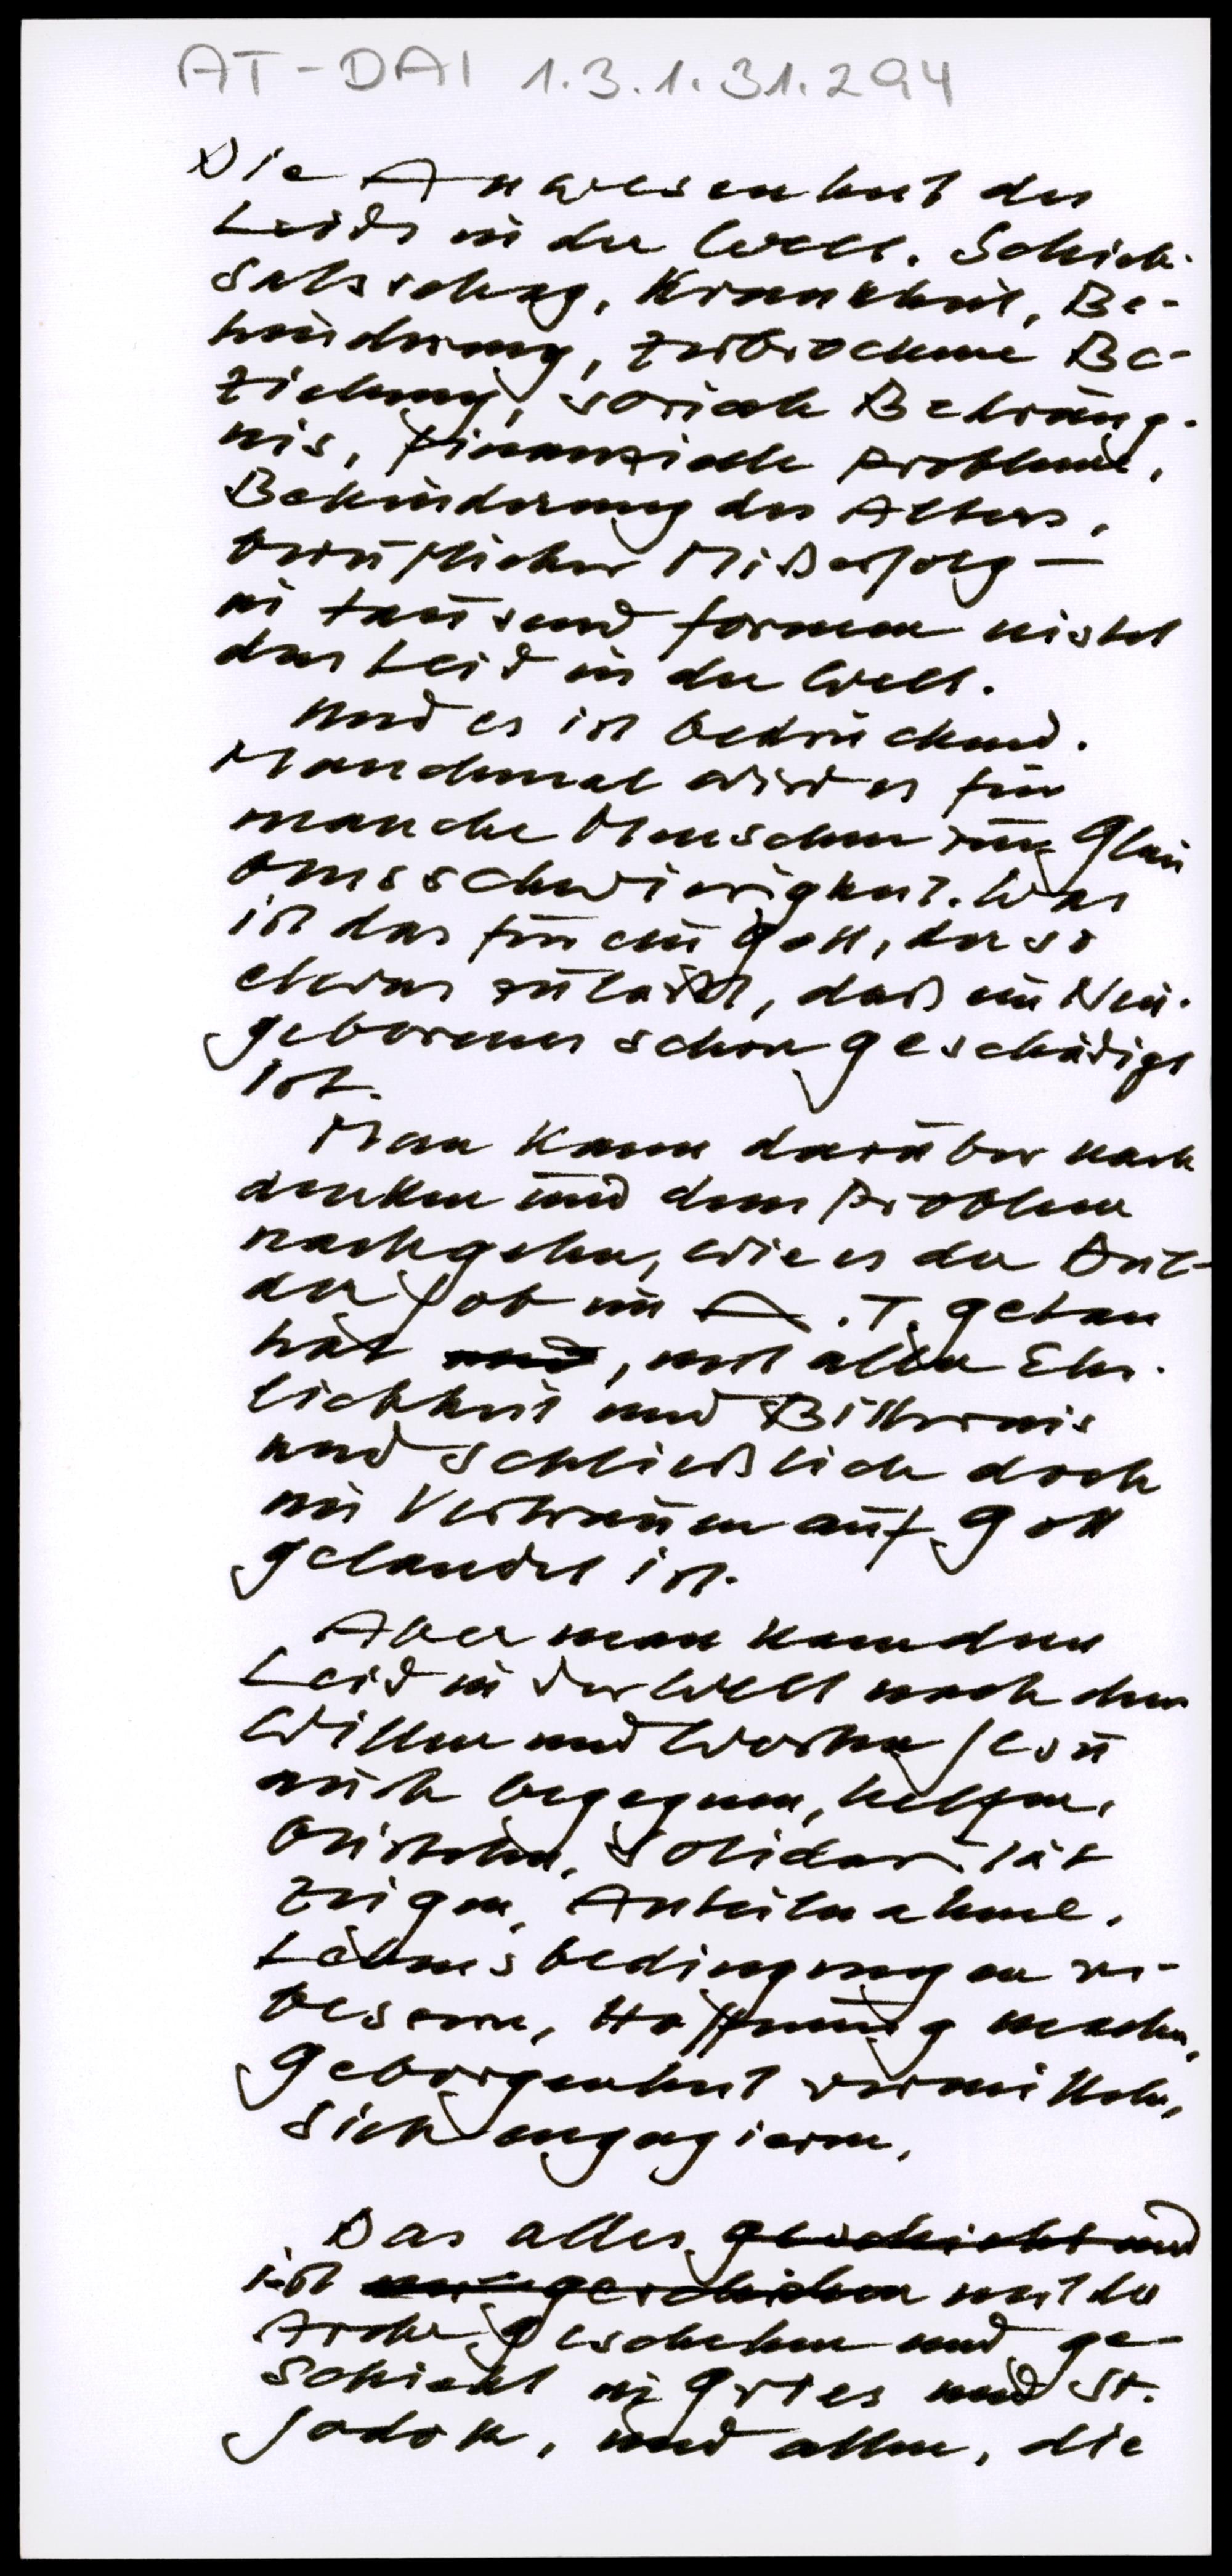 AT-DAI 1.3.1.31.294
Die Anwesenheit des
Leids in der Welt. Schick-
salsschlag, Krankheit, Be-
hinderung, zerbrochene Be-
ziehung, soziale Bedräng-
nis, finanzielle Probleme,
Behinderung des Alters,
beruflicher Mißerfolg –
in tausend Formen nistet
das Leid in der Welt.
Und es ist bedrückend.
Manchmal wird es für
manche Menschen zur Glau
bensschwierigkeit. Was
ist das für ein Gott, der so
etwas zuläßt, daß ein Neu-
geborenes schon geschädigt
ist.
Man kann darüber nach
denken und dem Problem
nachgehen, wie es der Dul-
der Job im A.T. getan
hat und, mit aller Ehr-
lichkeit und Bitternis
und schließlich doch
im Vertrauen auf Gott
gelandet ist.
Aber man kann dem
Leid in der Welt nach dem
Willen und Worten Jesu
auch begegnen, helfen,
beistehn, Solidarität
zeigen, Anteilnahme,
Lebensbedingungen ver-
bessern, Hoffnung machen,
Geborgenheit vermitteln,
sich engagieren.
Das alles geschieht und
ist geschehen mit der
Arche geschehen und ge-
schieht in Gries und St.
Jodok, und allen, die